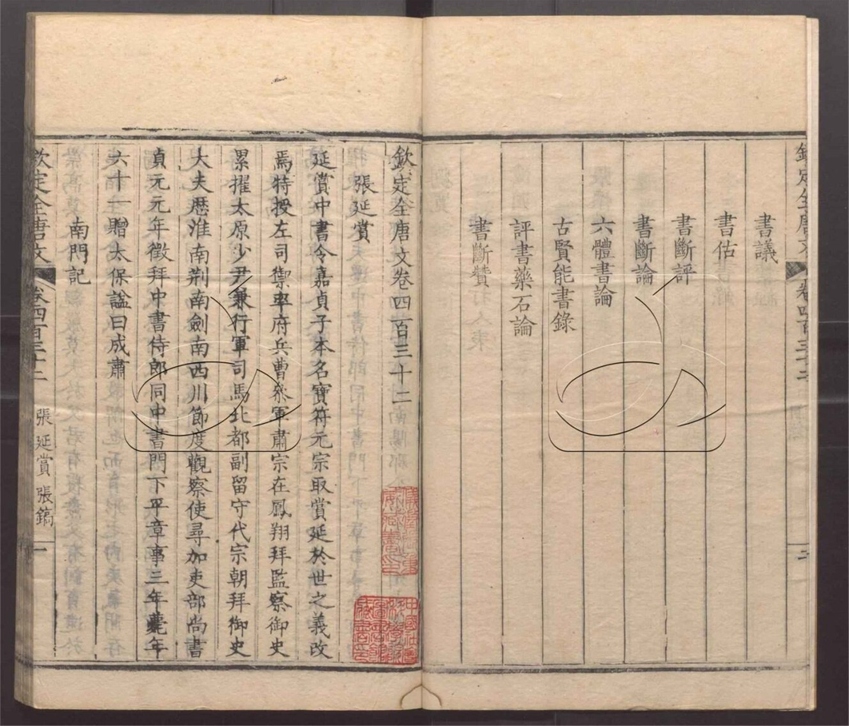 欽定全唐文
卷四百三十二
二
書議
書估
書斷評
書斷論
六體書論
古賢能書錄
評書藥石論
書斷贊
欽定全唐文卷四百三十二
張延賞
延賞中書令嘉貞子本名寶符元宗取賞延於世之義改
焉特授左司禦率府兵曹參軍肅宗在鳳翔拜監察御史
累擢太原少尹兼行軍司馬北都副留守代宗朝拜御史
大夫歷淮南荆南劍南西川節度觀察使尋加吏部尚書
貞元元年徵拜中書侍郎同中書門下平章事三年薨年
六十一贈太保諡曰成肅
南門記
欽定全唐文
卷四百三十二
張延賞 張鎬
一